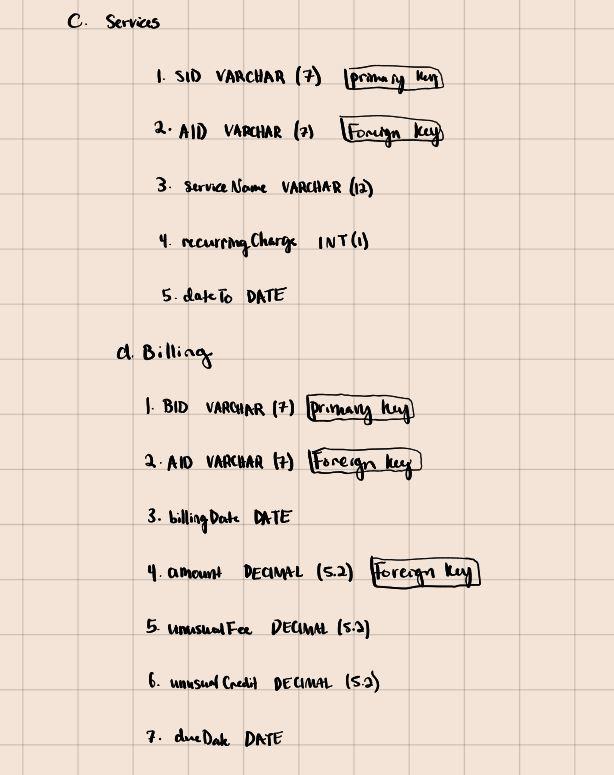 C. Services
1. SID VARCHAR (7) primary key
2. AID VARCHAR (7) Foreign key
3. serviceName VARCHAR (12)
4. recurringCharge INT(1)
5. dateTo DATE
d. Billing
1. BID VARCHAR (7) primary key
2. AID VARCHAR (7) Foreign key
3. billingDate DATE
4. amount DECIMAL (5.2) Foreign key
5. unusualFee DECIMAL (5.2)
6. unusualCredit DECIMAL (5.2)
7. dueDate DATE